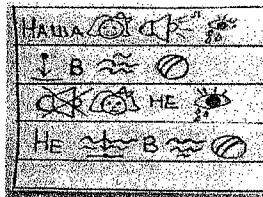 НАША
В
НЕ
НЕ В